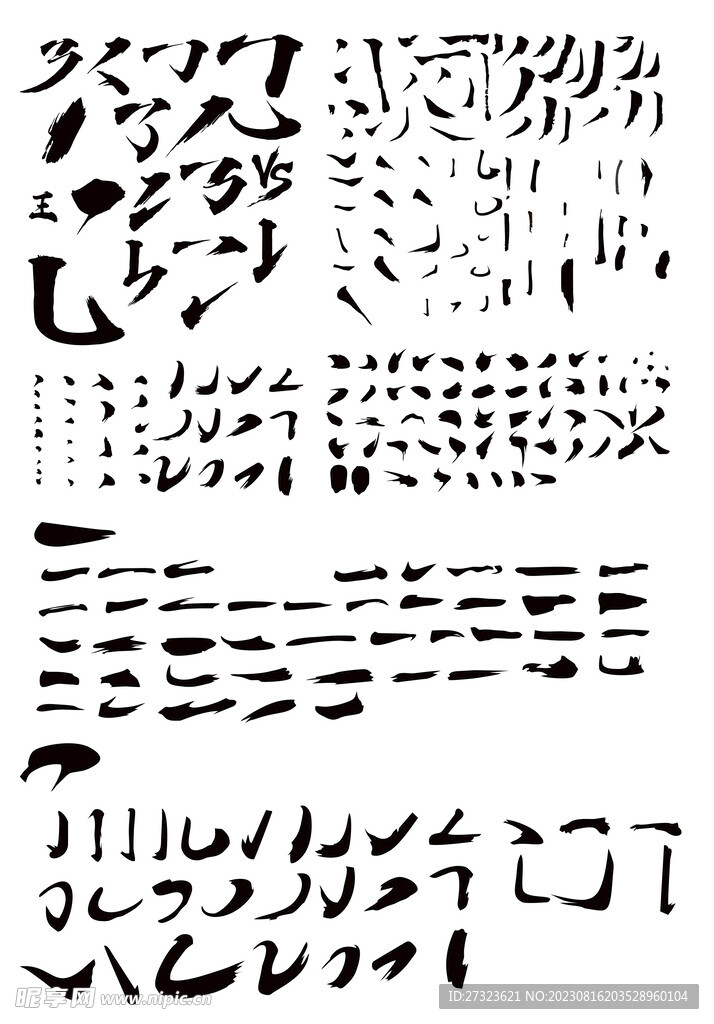 VS
王
昵享网 www.nipic.cn
ID:27323621 NO:20230816203528960104